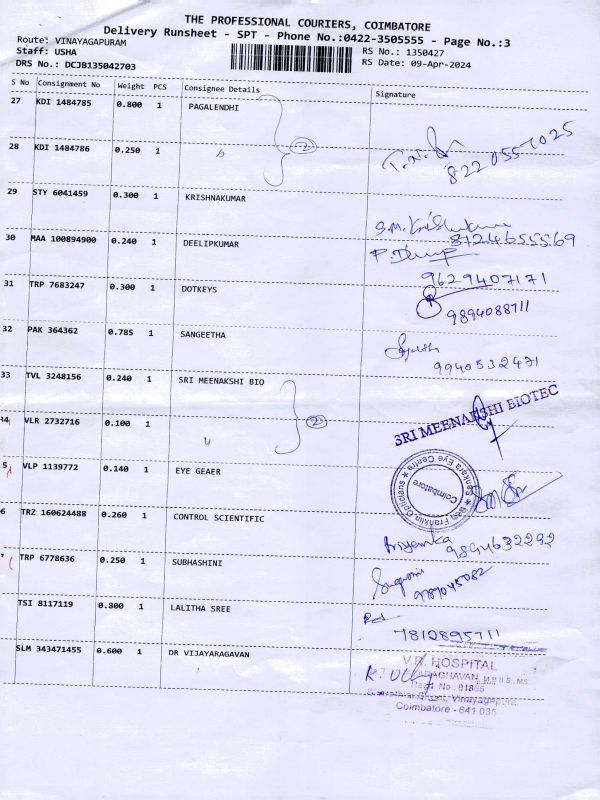 THE PROFESSIONAL COURIERS, COIMBATORE
Delivery Runsheet - SPT - Phone No.:0422-3505555 - Page No.:3
Route: VINAYAGAPURAM
Staff: USHA
DRS No.: DCJB135042703
RS No.: 1350427
RS Date: 09-Apr-2024
S No Consignment No Weight PCS Consignee Details Signature
27 KDI 1484785 0.800 1 PAGALENDHI
2
28 KDI 1484786 0.250 1 "
822 055 2025
29 STY 6041459 0.300 1 KRISHNAKUMAR
8124655569
30 MAA 100894900 0.240 1 DEELIPKUMAR
9629407171
31 TRP 7683247 0.300 1 DOTKEYS
9894088711
32 PAK 364362 0.785 1 SANGEETHA
9940532471
33 TVL 3248156 0.240 1 SRI MEENAKSHI BIO
SRI MEENAKSHI BIOTEC
2
34 VLR 2732716 0.100 1 "
5 VLP 1139772 0.140 1 EYE GEAER
Ben Franklin Opticians ★ Sankara Eye Centre ★
Coimbatore
6 TRZ 160624488 0.260 1 CONTROL SCIENTIFIC
Priyanka
9894632292
TRP 6778636 0.250 1 SUBHASHINI
9787045082
TSI 8117119 0.800 1 LALITHA SREE
7810895711
SLM 343471455 0.600 1 DR VIJAYARAGAVAN
V.R. HOSPITAL
RAGHAVAN, M.B.B.S., MS
Regd. No 61865
Vinayagapuram
Coimbatore - 641 035